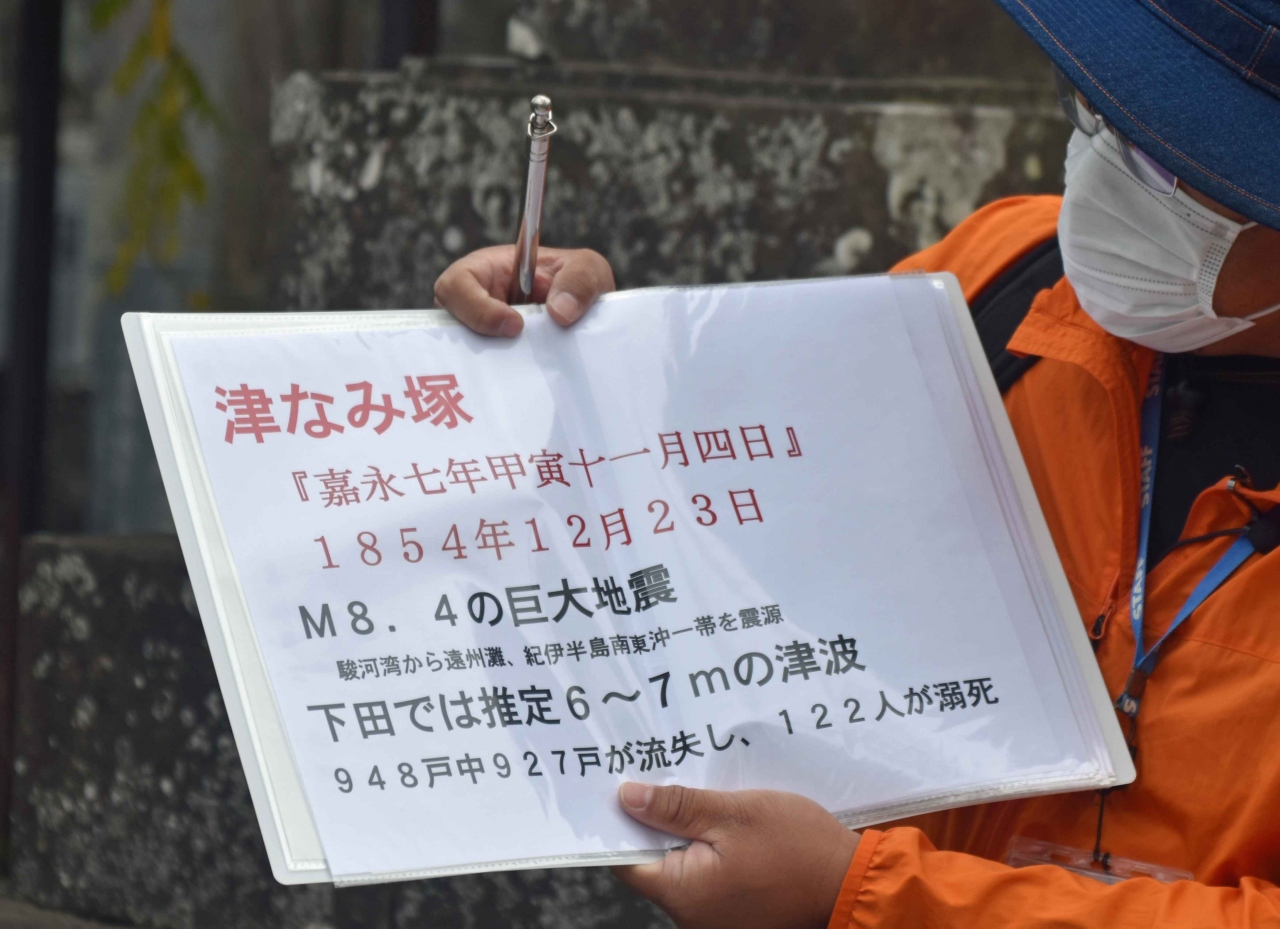 津なみ塚
『嘉永七年甲寅十一月四日』
１８５４年１２月２３日
Ｍ８．４の巨大地震
駿河湾から遠州灘、紀伊半島南東沖一帯を震源
下田では推定６～７ｍの津波
９４８戸中９２７戸が流失し、１２２人が溺死
STAFF